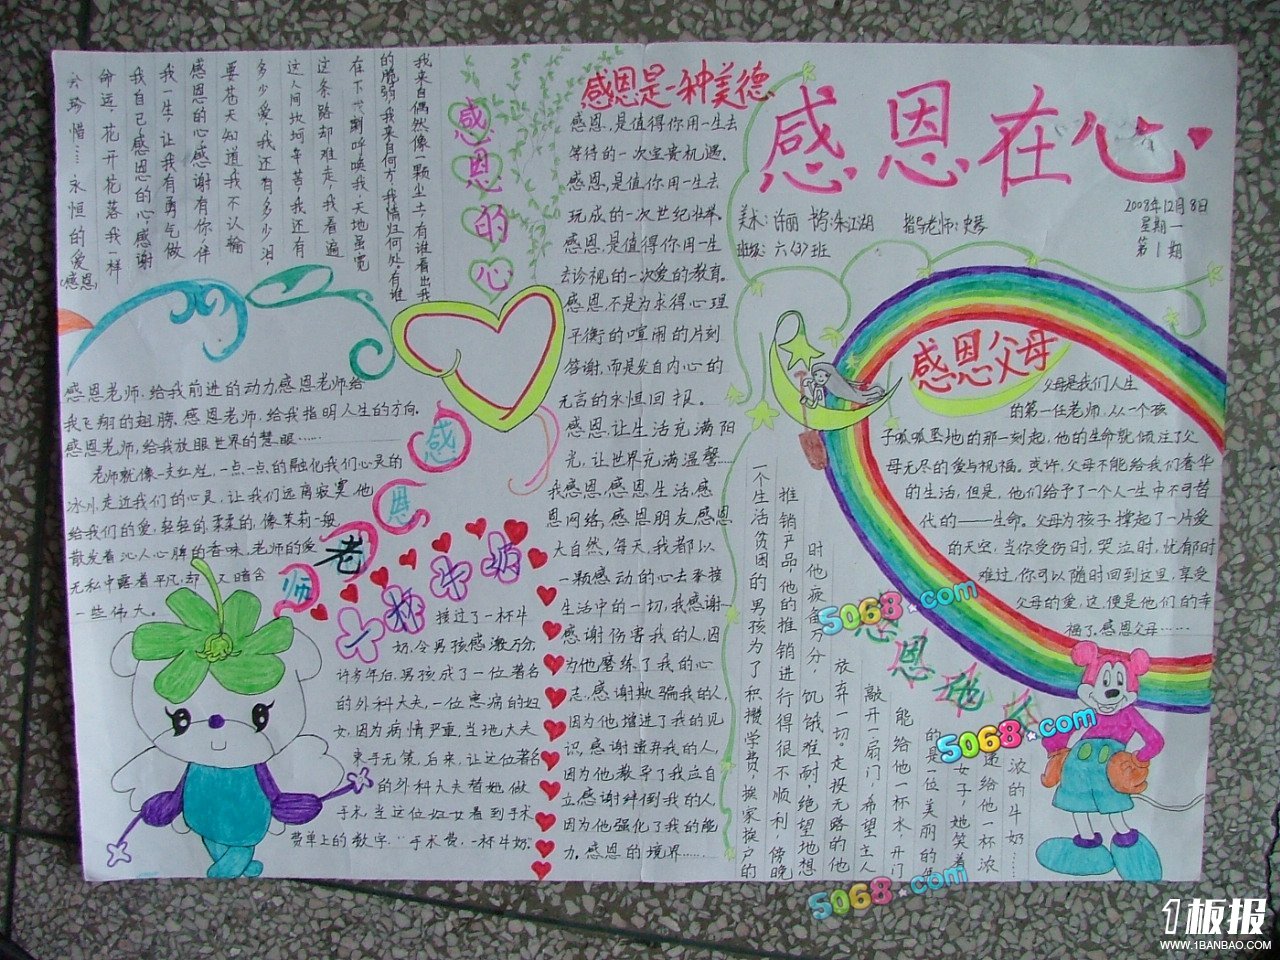 感恩在心
美术:许丽 书写:朱江湖 指导老师:史琴
班级:六(3)班
2008年12月8日
星期一
第1期
感恩父母
父母是我们人生
的第一任老师,从一个孩
子呱呱坠地的那一刻起,他的生命就倾注了父
母无尽的爱与祝福。或许,父母不能给我们奢华
的生活,但是,他们给予了一个人一生中不可替
代的——生命。父母为孩子撑起了一片爱
的天空,当你受伤时,哭泣时,忧郁时
难过,你可以随时回到这里,享受
父母的爱,这便是他们的幸
福了,感恩父母……
感恩是一种美德
感恩,是值得你用一生去
等待的一次宝贵机遇.
感恩,是值你用一生去
玩成的一次世纪壮举.
感恩,是值得你用一生
去诊视的一次爱的教育.
感恩,不是为求得心理
平衡的喧闹的片刻
答谢,而是发自内心的
无言的永恒回报。
感恩,让生活充满阳
光,让世界充满温馨……
我感恩,感恩生活,感
恩网络,感恩朋友,感恩
大自然,每天,我都以
一颗感动的心去承接
生活中的一切,我感谢…
感谢伤害我的人,因
为他磨练了我的心
志,感谢欺骗我的人,
因为他增进了我的见
识,感谢遗弃我的人,
因为他教导了我应自
立,感谢绊倒我的人
因为他强化了我的能
力,感恩的境界……
感恩的心
我来自偶然像一颗尘土,有谁看出我
的脆弱,我来自何方,我情归何处,有谁
在下一刻呼唤我,天地虽宽
这条路却难走,我看遍
这人间坎坷辛苦,我还有
多少爱,我还有多少泪
要苍天知道,我不认输
感恩的心感谢有你,伴
我一生,让我有勇气做
我自己感恩的心,感谢
命运,花开花落我一样
会珍惜……永恒的爱
(感恩)
感恩老师
感恩老师,给我前进的动力,感恩老师,给
我飞翔的翅膀,感恩老师,给我指明人生的方向,
感恩老师,给我放眼世界的慧眼……
老师就像一支红烂,一点一点的融化我们心灵的
冰川,走近我们的心灵,让我们远离寂寞,他
给我们的爱,轻轻的,柔柔的,像茉莉一般
散发着沁人心脾的香味,老师的爱
无私中露着平凡,却又暗含
一些伟大。
感恩他人
一个生活贫困的男孩为了积攒学费,挨家挨户的
推销产品,他的推销进行得很不顺利,傍晚
时他疲备万分,饥饿难耐,绝望地想
放弃一切。走投无路的他
敲开一扇门,希望主人
能给他一杯水,开门
的是一位美丽的年
女子,她笑着
递给他一杯浓
浓的牛奶……
一杯牛奶
接过了一杯牛
奶,令男孩感激万分,
许多年后,男孩成了一位著名
的外科大夫,一位患病的妇
女,因为病情严重,当地大夫
束手无策,后来,让这位著名
的外科大夫替她做
手术,当这位妇女看到手术
费单上的数字,“手术费,一杯牛奶.”
5068.com
5068.com
5068.com
1板报
WWW.1BANBAO.COM